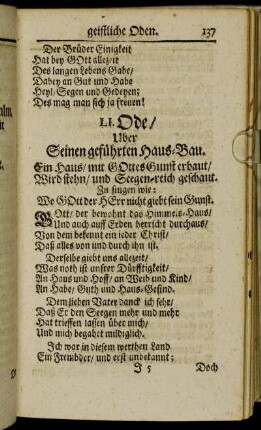 geistliche Oden. 137
Der Brüder Einigkeit
Hat bey GOtt allezeit
Des langen Lebens Gabe/
Dabey an Gut und Habe
Heyl/ Segen und Gedeyen;
Des mag man sich ja freuen!
LI. Ode/
Uber
Seinen geführten Haus-Bau.
Ein Haus/ mit GOttes Gunst erbaut/
Wird stehn/ und Seegen-reich geschaut.
Zu singen wie:
Wo GOtt der HErr nicht giebt sein Gunst.
GOtt/ der bewohnt das Himmels-Haus/
Und auch auff Erden herrscht durchaus/
Von dem bekennt ein ieder Christ/
Daß alles von und durch ihn ist.
Derselbe giebt uns allezeit/
Was noth ist unsrer Dürfftigkeit/
An Haus und Hoff/ an Weib und Kind/
An Habe/ Guth und Haus-Gesind.
Dem lieben Vater danck ich sehr/
Daß Er den Seegen mehr und mehr
Hat trieffen lassen über mich/
Und mich begabet mildiglich.
Ich war in diesem werthen Land
Ein Frembder/ und erst unbekannt;
J 5 Doch